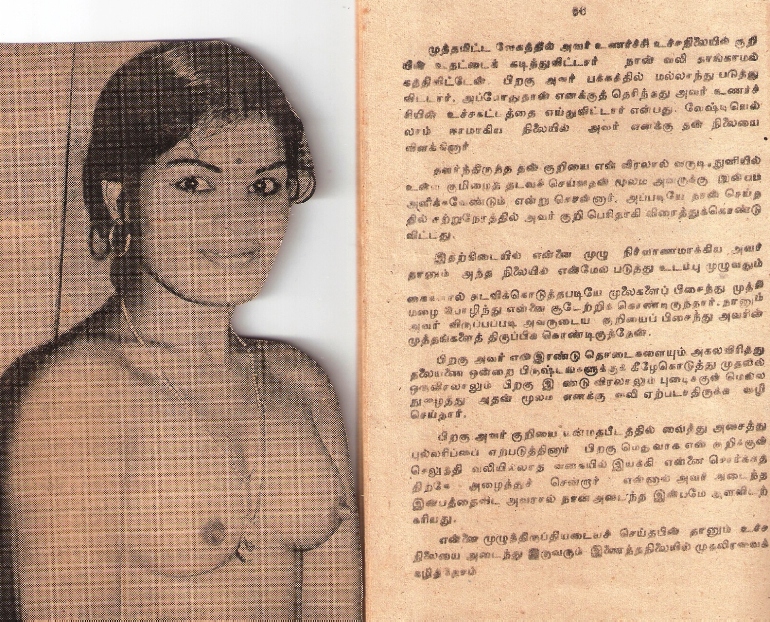 56
முத்தமிட்ட வேகத்தில் அவர் உணர்ச்சி உச்சநிலையில் குறி
யின் உதட்டைக் கடித்துவிட்டார் நான் வலி தாங்காமல்
கத்திவிட்டேன். பிறகு அவர் பக்கத்தில் மல்லாந்து படுத்து
விட்டார். அப்போதுதான் எனக்குத் தெரிந்தது அவர் உணர்ச்
சியின் உச்சகட்டத்தை எய்துவிட்டார் என்பது. வேஷ்டியெல்
லாம் ஈரமாகிய நிலையில் அவர் எனக்கு தன் நிலையை
விளக்கினார்
தளர்ந்திருந்த தன் குறியை என் விரலால் வருடி, நுனியில்
உள்ள குமிழைத் தடவச் செய்வதன் மூலம் அவருக்கு இன்பம்
அளிக்கவேண்டும் என்று சொன்னார். அப்படியே நான் செய்த
தில் சற்றுநேரத்தில் அவர் குறி பெரிதாகி விரைத்துக்கொண்டு
விட்டது.
இதற்கிடையில் என்னை முழு நிர்வாணமாக்கிய அவர்
தானும் அந்த நிலையில் என்மேல் படுத்து உடம்பு முழுவதும்
கைகளால் தடவிக்கொடுத்தபடியே முலைகளைப் பிசைந்து முத்த
மழை பொழிந்து என்னை சூடேற்றிக் கொண்டிருந்தார். நானும்
அவர் விருப்பப்படி அவருடைய குறியைப் பிசைந்து அவரின்
முத்தங்களைத் திருப்பிக் கொண்டிருந்தேன்.
பிறகு அவர் என் இரண்டு தொடைகளையும் அகலவிரித்து
தலையணை ஒன்றை பிருஷ்டங்களுக்குக் கீழேகொடுத்து முதலில்
ஒருவிரலாலும் பிறகு இரண்டு விரலாலும் புடைக்குள் மெல்ல
நுழைத்து அதன் மூலம் எனக்கு வலி ஏற்படாதிருக்க வழி
செய்தார்.
பிறகு அவர் குறியை மன்மதபீடத்தில் வைத்து அசைத்து
புல்லரிப்பை ஏற்படுத்தினார் பிறகு மெதுவாக என் குறிக்குள்
செலுத்தி வலியில்லாத வகையில் இயக்கி என்னை சொர்க்கத்
திற்கே அழைத்துச் சென்றார் என்னால் அவர் அடைந்த
இன்பத்தைவிட அவரால் நான் அடைந்த இன்பமே அளவிடற்
கரியது.
என்னை முழுத்திருப்தியடையச் செய்தபின் தானும் உச்ச
நிலையை அடைந்து இருவரும் இணைந்தநிலையில் முதலிரவைக்
கழித்தோம்